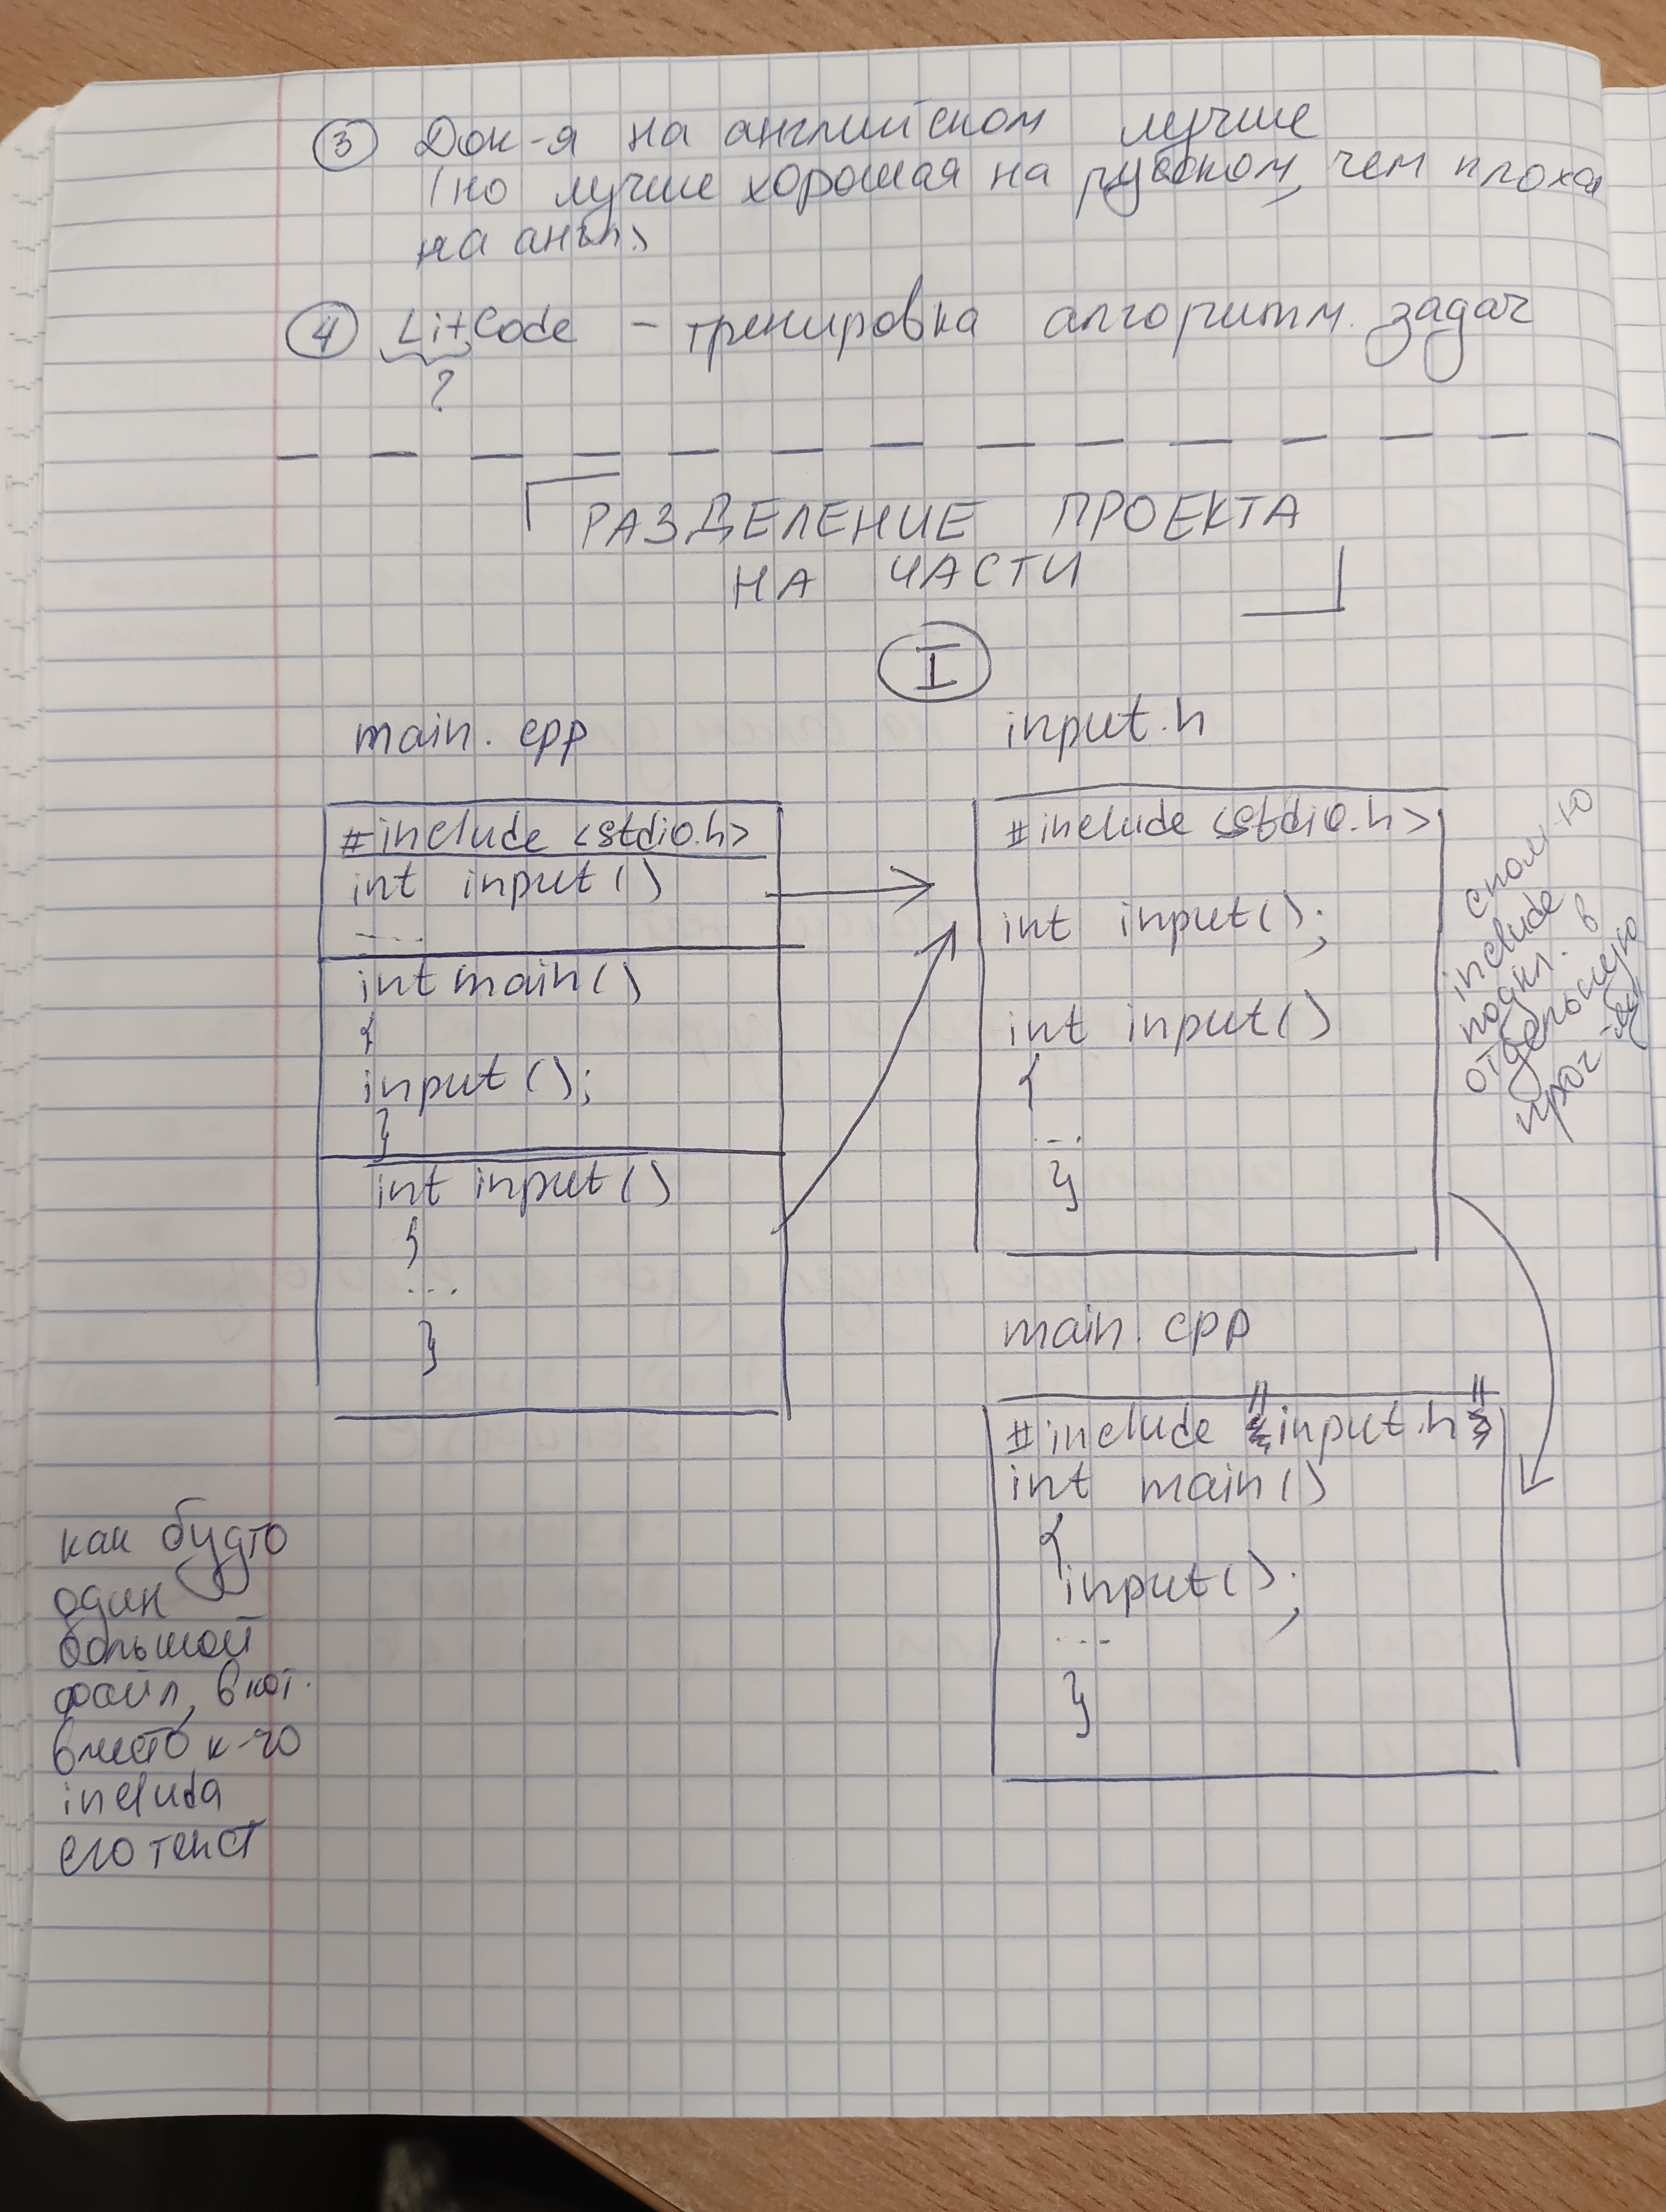 ③ Док-я на английском лучше
(но лучше хорошая на русском, чем плохая
на англ)
④ LitCode - тренировка алгоритм. задач
?
РАЗДЕЛЕНИЕ ПРОЕКТА
НА ЧАСТИ
I
main.cpp
#include <stdio.h>
int input()
....
int main()
{
input();
}
int input()
{
...
}
input.h
#include <stdio.h>
int input();
int input()
{
...
}
с пом-ю
include
подкл. в
отдельную
main.cpp
#include "input.h"
int main()
{
input();
...
}
как будто
один
большой
файл, в кот.
вместо к-го
includa
его текст